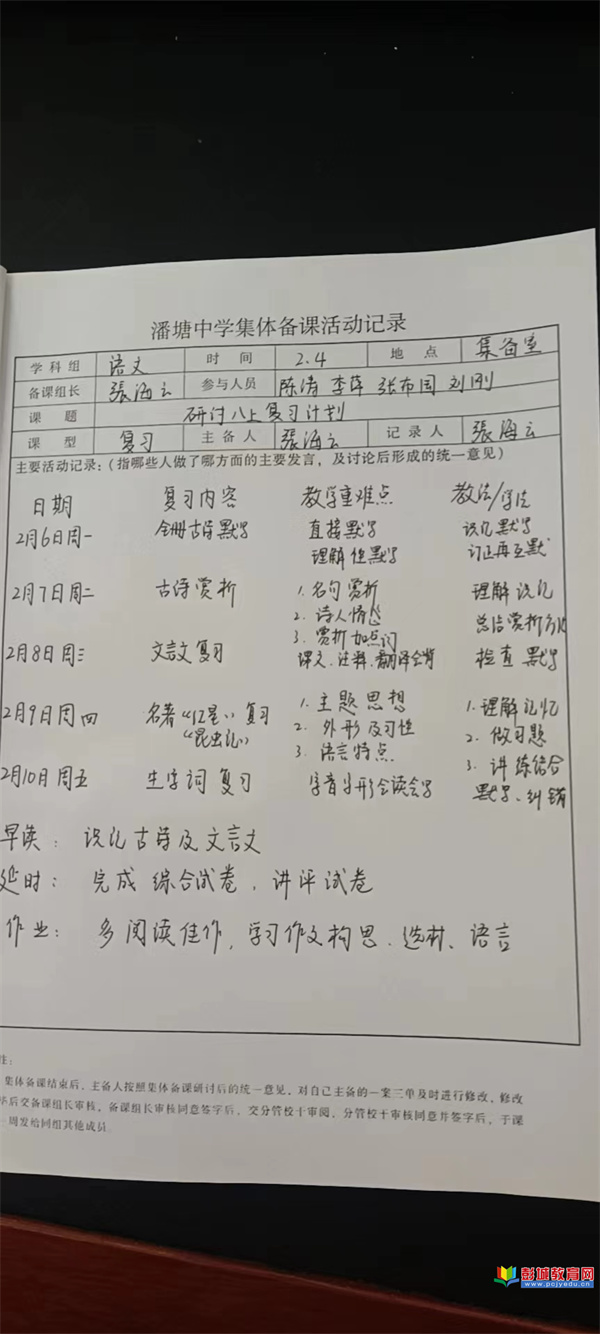 潘塘中学集体备课活动记录
学科组 语文 时间 2.4 地点 集备室
备课组长 張海云 参与人员 陈清 李萍 张布国 刘刚
课题 研讨八上复习计划
课型 复习 主备人 張海云 记录人 張海云
主要活动记录：（指哪些人做了哪方面的主要发言，及讨论后形成的统一意见）
日期 复习内容 教学重难点 教法/学法
2月6日周一 全册古诗默写 直接默写 识记默写
理解性默写 订正再互默
2月7日周二 古诗赏析 1.名句赏析 理解识记
2.诗人情感 总结赏析方法
3.赏析加点词
2月8日周三 文言文复习 课文、注释、翻译会背 检查默写
2月9日周四 名著“红星”复习 1.主题思想 1.理解记忆
“昆虫记” 2.外形及习性 2.做习题
3.语言特点 3.讲练结合
2月10日周五 生字词复习 字音字形会读会写 默写、纠错
早读：识记古诗及文言文
延时：完成综合试卷，讲评试卷
作业：多阅读佳作，学习作文构思、选材、语言
注：
集体备课结束后，主备人按照集体备课研讨后的统一意见，对自己主备的一案三单及时进行修改，修改
毕后交备课组长审核，备课组长审核同意签字后，交分管校干审阅、分管校干审核同意并签字后，于课
一周发给同组其他成员
彭城教育网
www.pcjyedu.cn